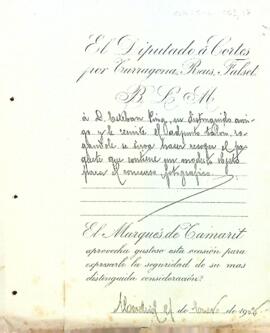 El Diputado á Cortes
por Tarragona, Reus, Falset.
B. L. M.
á D. Esteban Puig, su distinguido ami-
go y le remite el adjunto talon, ro-
gándole se sirva hacer recoger el pa-
quete que contiene un modesto objeto
para el concurso fotográfico.
El Marqués de Tamarit
aprovecha gustoso esta ocasión para
expresarle la seguridad de su mas
distinguida consideración.
Madrid 21 de de 192